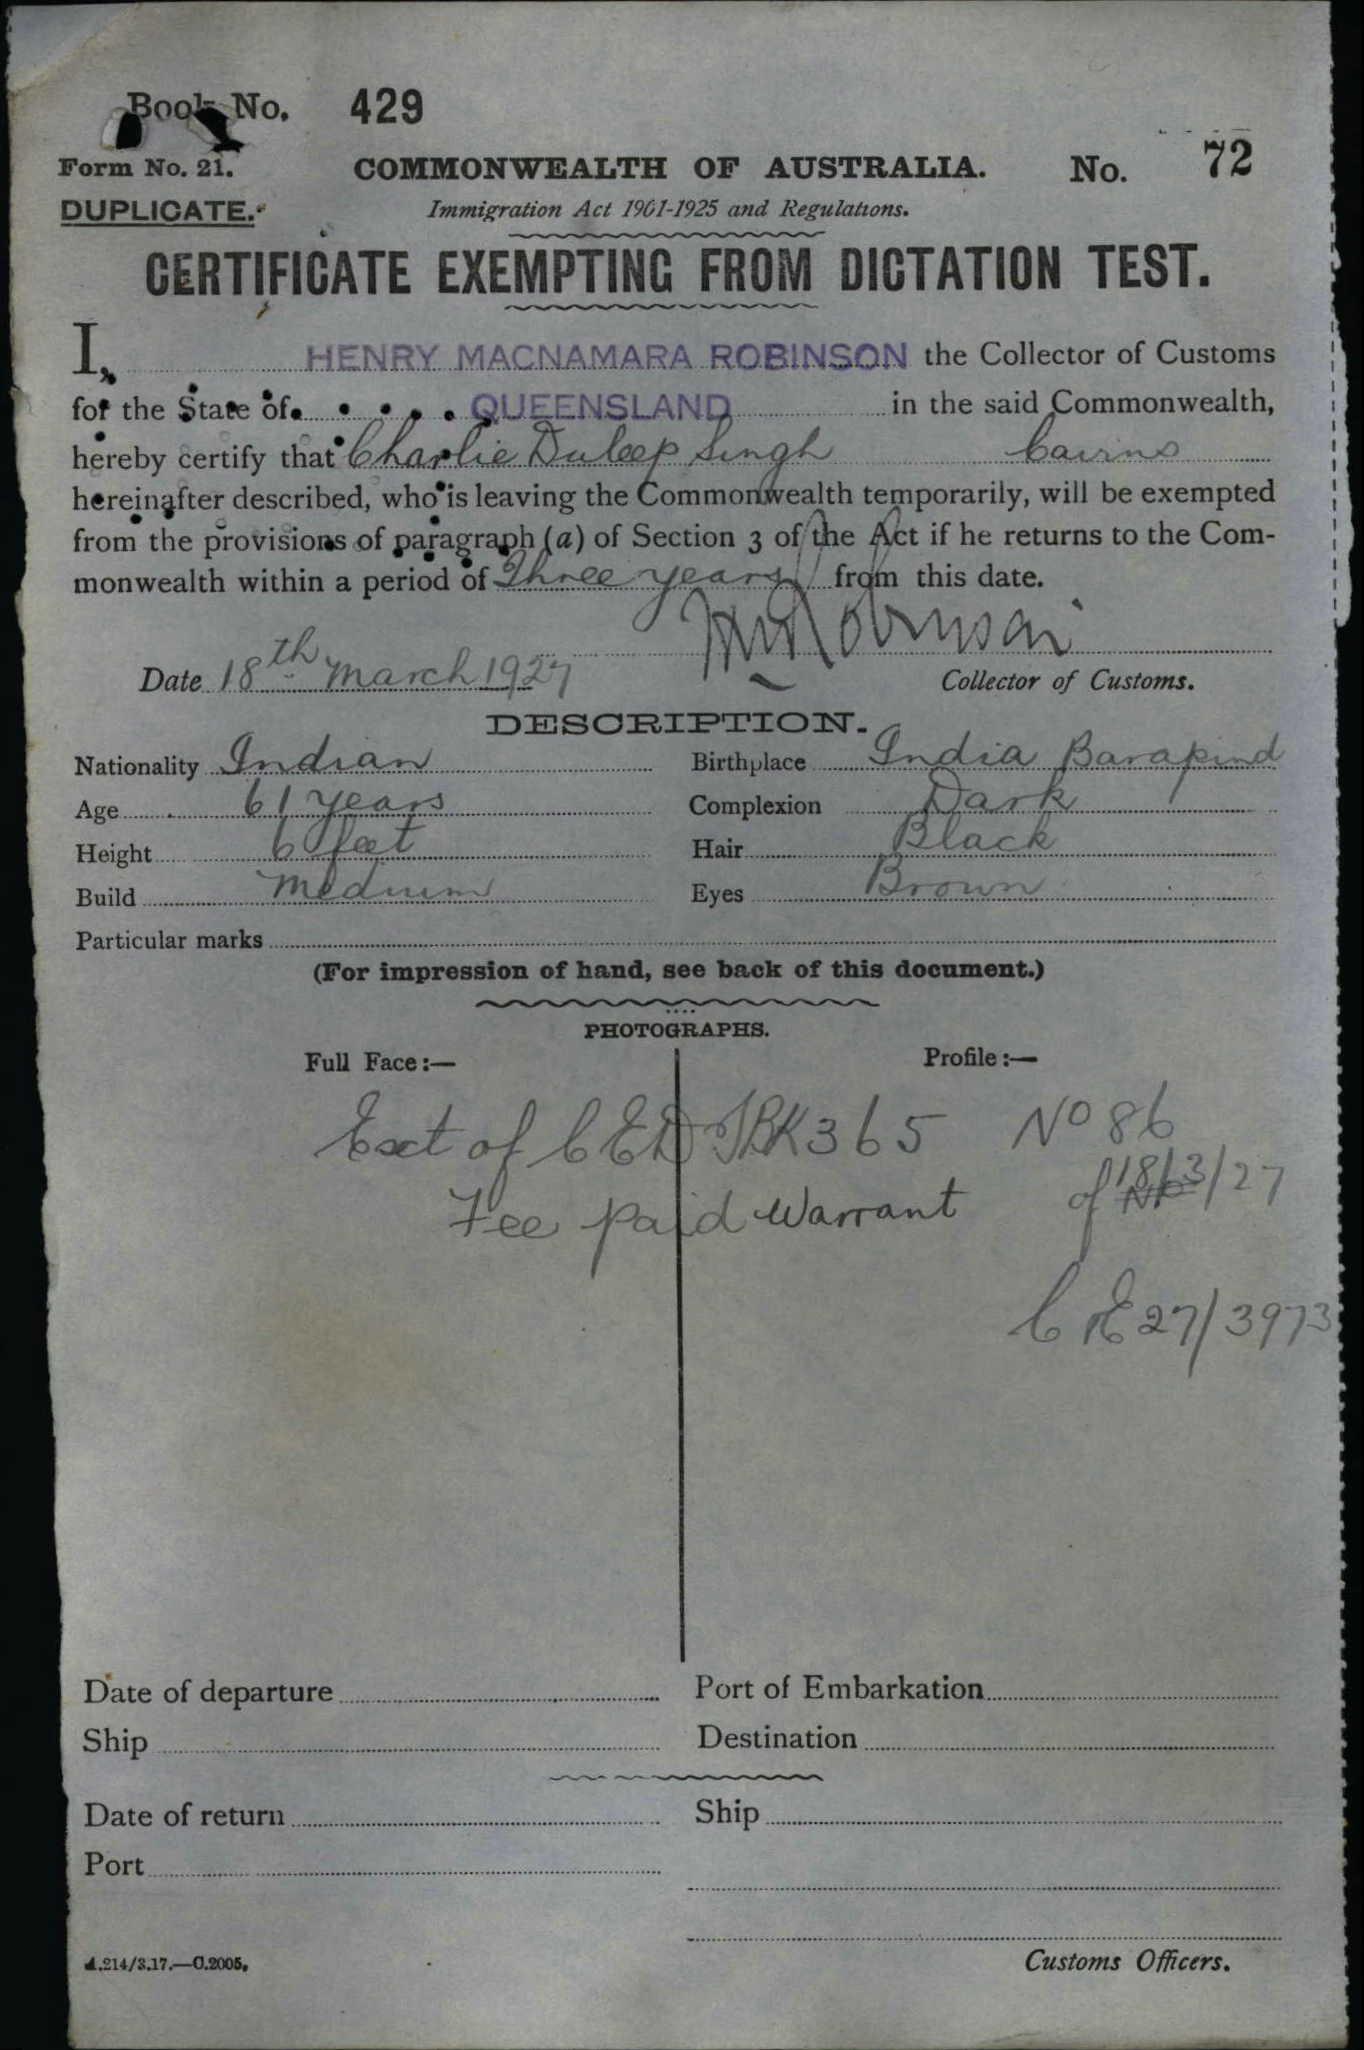 Book No. 429
Form No. 21. COMMONWEALTH OF AUSTRALIA. No. 72
DUPLICATE. Immigration Act 1901-1925 and Regulations.
CERTIFICATE EXEMPTING FROM DICTATION TEST.
I, HENRY MACNAMARA ROBINSON the Collector of Customs
for the State of QUEENSLAND in the said Commonwealth,
hereby certify that Charlie Duleep Singh Cairns
hereinafter described, who is leaving the Commonwealth temporarily, will be exempted
from the provisions of paragraph (a) of Section 3 of the Act if he returns to the Com-
monwealth within a period of Three years from this date.
HM Robinson
Date 18th March 1927 Collector of Customs.
DESCRIPTION.
Nationality Indian Birthplace India Barapind
Age 61 years Complexion Dark
Height 6 feet Hair Black
Build Medium Eyes Brown
Particular marks
(For impression of hand, see back of this document.)
PHOTOGRAPHS.
Full Face:— Profile:—
Ext of CEDT BK 365 No 86
of 18/3/27
Fee paid Warrant
C & E 27/3973
Date of departure Port of Embarkation
Ship Destination
Date of return Ship
Port
A.214/3.17.—C.2005. Customs Officers.